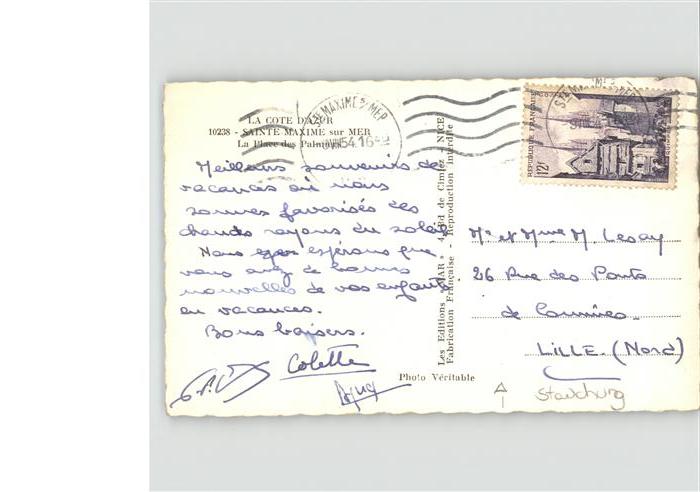 LA COTE D'AZUR
10238 - SAINTE MAXIME sur MER
La Place des Palmiers
STE MAXIME S/ MER
54 16
REPUBLIQUE FRANÇAISE
12f
Meilleurs souvenirs de
vacances où nous
sommes favorisés des
chauds rayons du soleil
Nous espérons que
vous avez de bonnes
nouvelles de vos enfants
en vacances.
Bons baisers.
Colette
Photo Véritable
Les Editions "MAR" - 4, Bd de Cimiez - NICE
Fabrication Française - Reproduction interdite
Mr et Mme M. Lesay
26 Rue des Ponts
de Comines
LILLE (Nord)